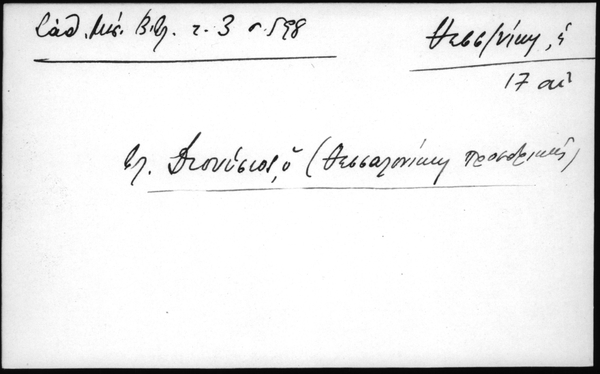 Σάθ. Μεσ. Βιβλ. τ. 3 σ 598
Θεσσ/νίκη, ἡ
17 αἰ
βλ. Διονύσιος, ὁ (Θεσσαλονίκης πρόεδρος)